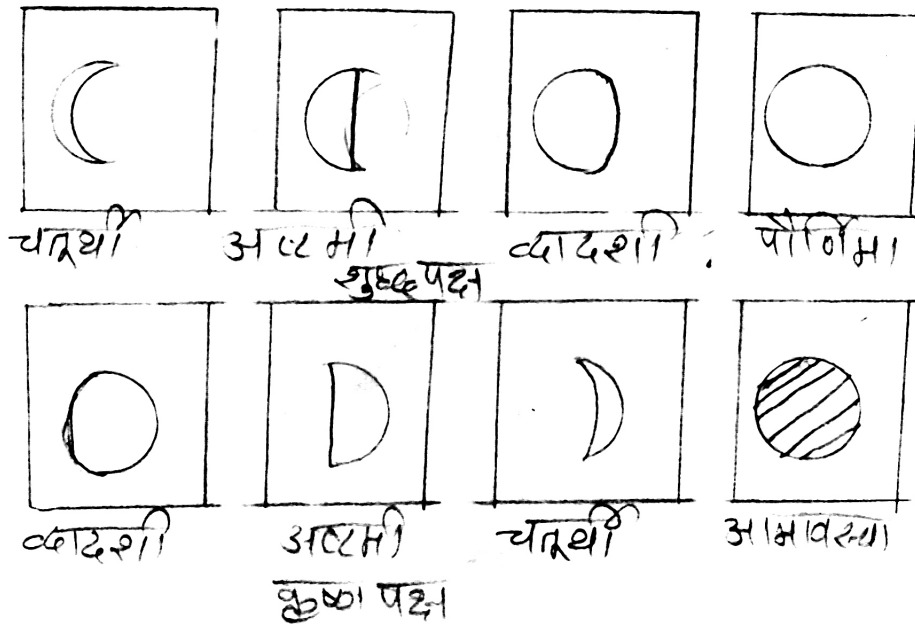 चतुर्थी अष्टमी व्दादशी पौर्णिमा
शुध्द पक्ष
व्दादशी अष्टमी चतुर्थी आमावस्या
कृष्ण पक्ष